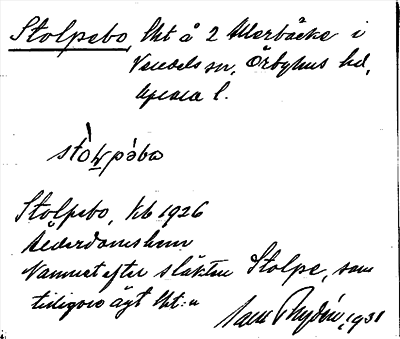 Stolpebo, lht å 2 Ullerbäcke i
Vendels sn, Örbyhus hd,
Upsala l.
stòw̲pə̀bo
Stolpebo, kb 1926
Namnet efter släkten Stolpe, som
tidigare ägt lht:n
Rydén, 1931